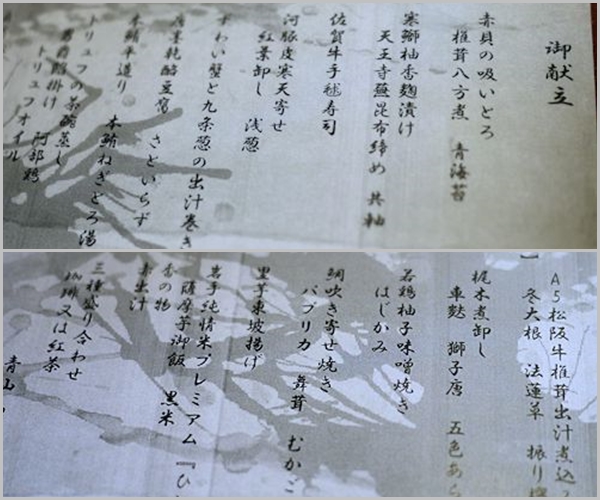 御献立
赤貝の吸いとろ
椎茸八方煮 青海苔
寒鰤柚香麹漬け
天王寺蕪昆布締め 共軸
佐賀牛手毬寿司
河豚皮寒天寄せ
紅葉卸し 浅葱
ずわい蟹と九条葱の出汁巻き
乾酪豆腐 さといらず
本鮪平造り 本鮪ねぎとろ湯
トリュフの茶碗蒸し
阿部鶏
トリュフオイル
A5松阪牛椎茸出汁煮込
冬大根 法蓮草 振り
梶木煮卸し
車麩 獅子唐 五色あ
若鶏柚子味噌焼き
はじかみ
鯛吹き寄せ焼き
パプリカ 舞茸 むかご
里芋東坡揚げ
岩手純情米プレミアム『ひ
薩摩芋御飯 黒米
香の物
赤出汁
三種盛り合わせ
珈琲又は紅茶
青山